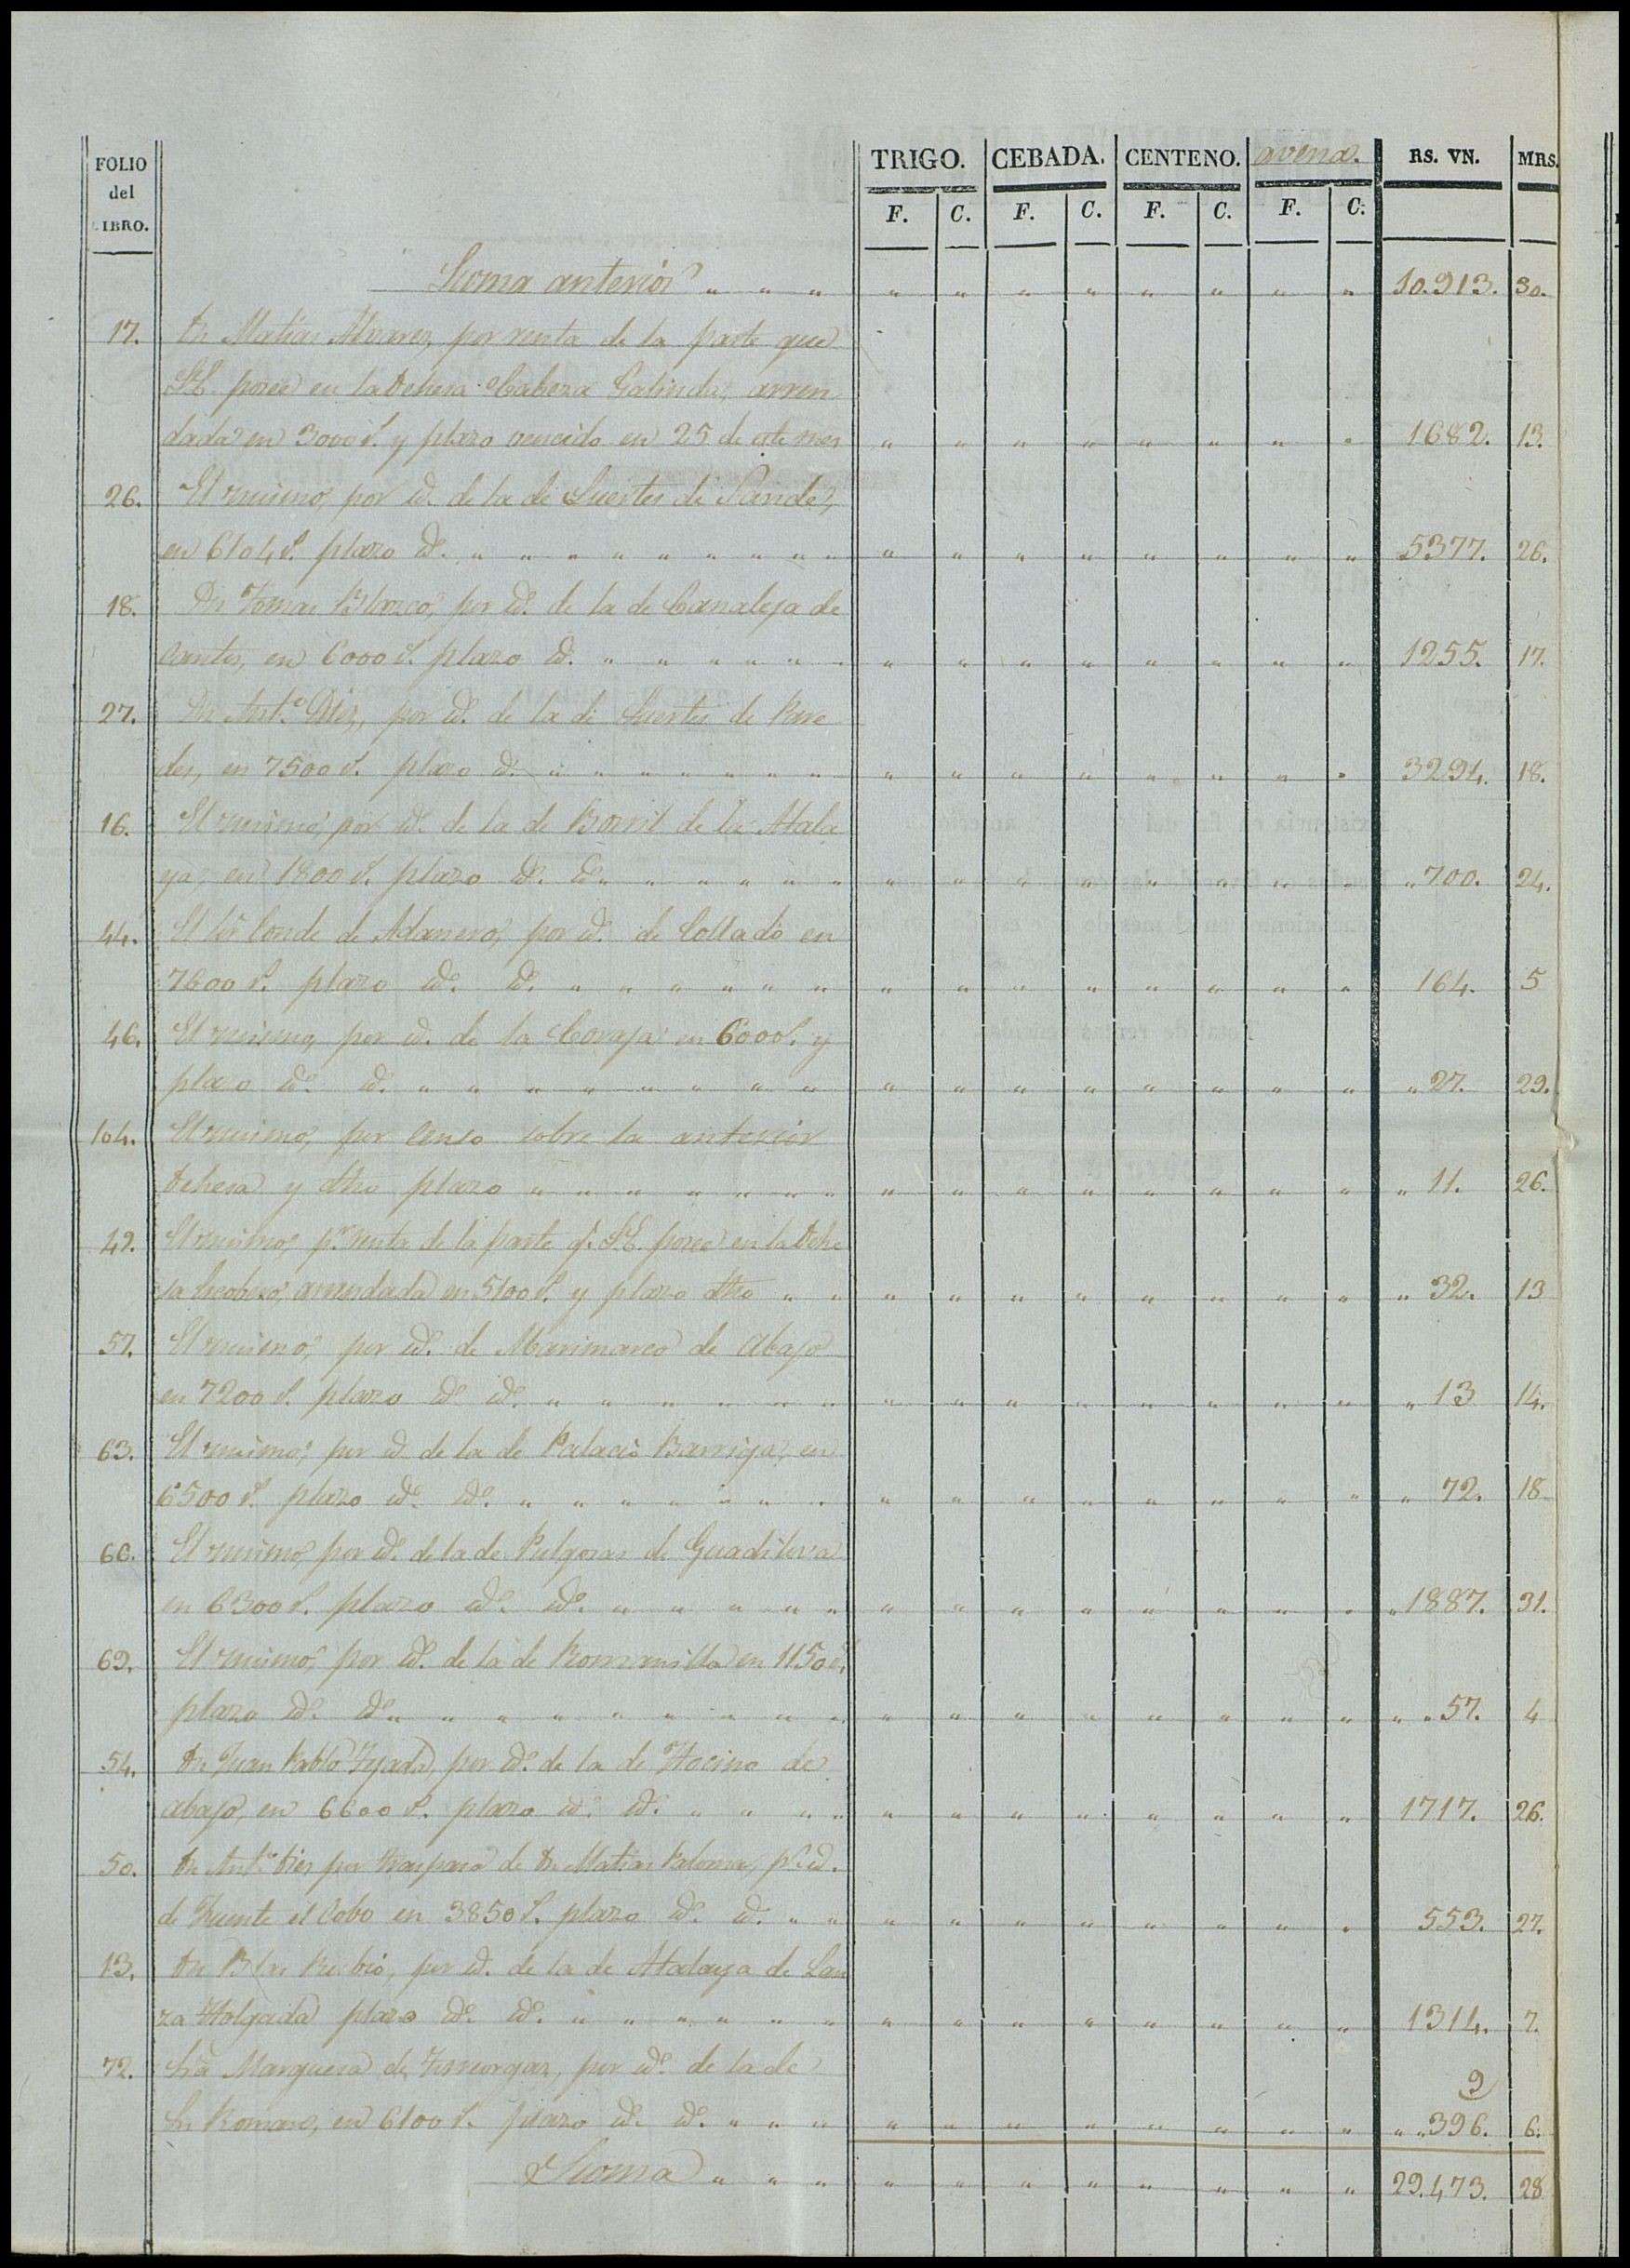 FOLIO del LIBRO. TRIGO. CEBADA. CENTENO. avena. RS. VN. MRS.
F. C. F. C. F. C. F. C.
Suma anterior 10.913. 30.
17. Dn Matias Alvarez, por renta de la parte que
S.E. posee en la Dehesa Cabeza Galinda, arren
dada en 3000 r.s y plazo vencido en 25 de este mes 1682. 13.
26. El mismo, por id. de la de Suertes de Sande,
en 6104 r.s plazo id. 5377. 26.
18. Dn Tomas Velazco, por id. de la de Canaleja de
en 6000 r.s plazo id. 1255. 17.
27. Dn Ant.o Diez, por id. de la de Suertes de Pare
des, en 7500 r.s plazo id. 3294. 18.
16. El mismo, por id. de la de Borril de la Atala
ya, en 1800 r.s plazo id. id. 700. 24.
44. El Sor Conde de Adanero, por id. de Collado en
7600 r.s plazo id. id. 164. 5
46. El mismo, por id. de la Coraja en 6000 r.s y
plazo id. id. 27. 29.
104. El mismo, por censo sobre la anterior
Dehesa y dho plazo 11. 26.
42. El mismo, p.r renta de la parte q.e S.E. posee en la Dehe
sa Escobero, arrendada en 5100 r.s y plazo dho 32. 13
57. El mismo, por id. de Marimarco de Abajo
en 7200 r.s plazo id. id. 13 14.
63. El mismo, por id. de la de Palacio Barriga, en
6500 r.s plazo id. id. 72. 18
66. El mismo, por id. de la de Pulgosas de Guadilova
en 6300 r.s plazo id. id. 1887. 31.
69. El mismo, por id. de la de Romanilla en 1150 r.s
plazo id. id. 57. 4
54. Dn Juan Pablo Tejada, por id. de la de Hocino de
abajo, en 6600 r.s plazo id. id. 1717. 26.
50. Dn Ant.o Diez por traspaso de Dn Matias Paloma, p.r id.
de Fuente el Lobo en 3850 r.s plazo id. id. 553. 27.
13. Dn Blas Rubio, por id. de la de Atalaya de Lan
za Holgada plazo id. id. 1314. 7.
72. La Marquesa de por id. de la de
Sn Roman, en 6100 r.s plazo id. id. 396. 6.
9
Suma 29.473. 28